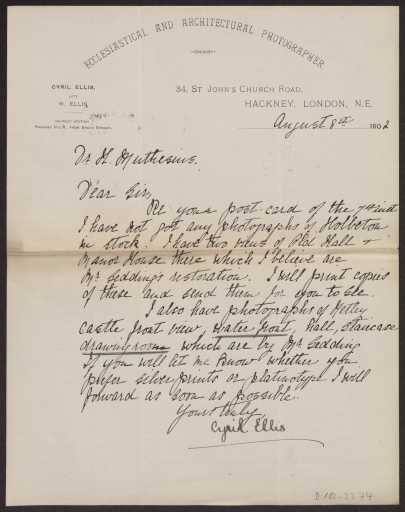 ECCLESIASTICAL AND ARCHITECTURAL PHOTOGRAPHER
CYRIL ELLIS,
LATE
W. ELLIS
34, ST JOHN'S CHURCH ROAD,
HACKNEY, LONDON, N.E.
August 8th 1902
Dr H. Muthesius.
Dear Sir,
Re your post card of the 7th inst
I have not got any photographs of Holbeton
in stock. I have two views of Old Hall &
Manor House there which I believe are
Mr Sedding's restoration. I will print copies
of these and send them for you to see.
I also have photographs of Netley
castle front view, water front, hall, staircase
drawing room which are by Mr Sedding
If you will let me know whether you
prefer silver prints or platinotype I will
forward as soon as possible.
Yours truly,
Cyril Ellis